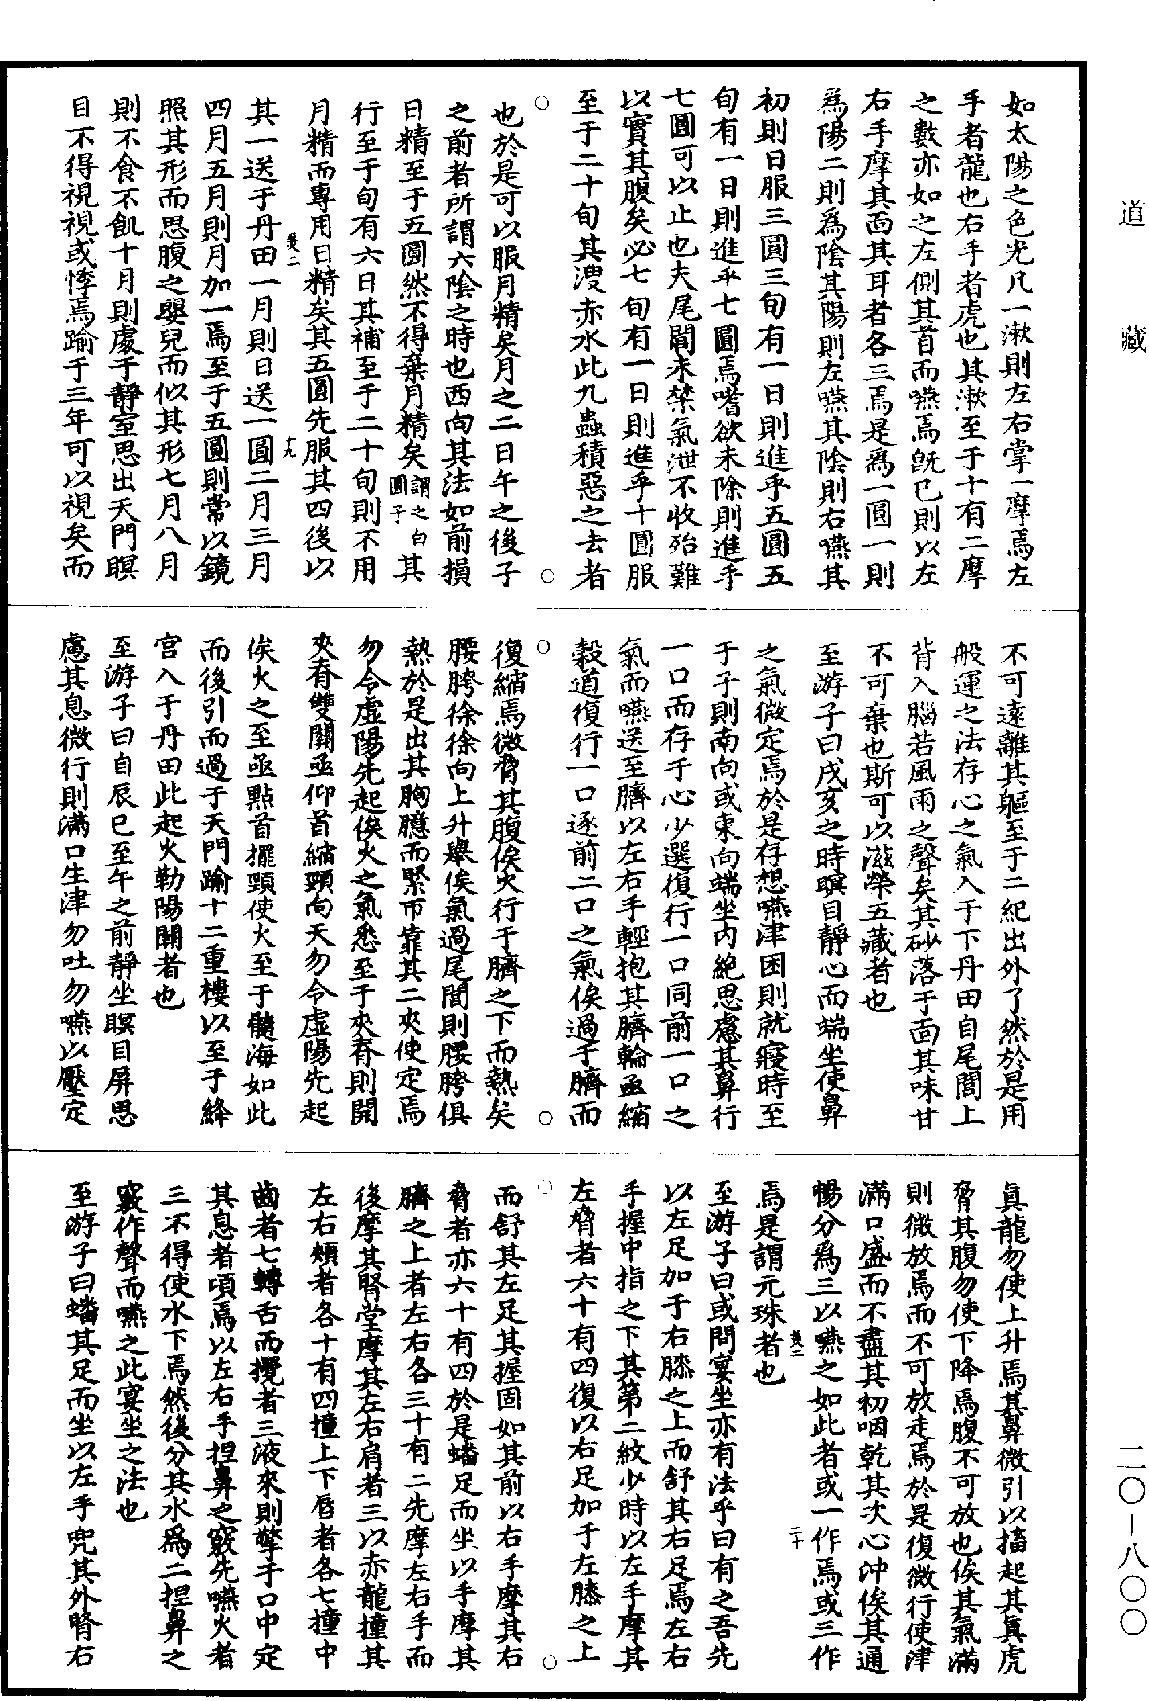 道藏
二〇—八〇〇
如太陽之色光凡一漱則左右掌一摩焉左
手者龍也右手者虎也其漱至于十有二摩
之數亦如之左側其首而嚥焉旣已則以左
右手摩其面其耳者各三焉是爲一圓一則
爲陽二則爲陰其陽則左嚥其陰則右嚥其
初則日服三圓三旬有一日則進乎五圓五
旬有一日則進乎七圓焉嗜欲未除則進乎
七圓可以止也夫尾閭未禁氣泄不收殆難
以實其腹矣必七旬有一日則進乎十圓服
至于二十旬其溲赤水此九蟲積惡之去者
也於是可以服月精矣月之二日午之後子
之前者所謂六陰之時也西向其法如前損
日精至于五圓然不得棄月精矣謂之白圓子其
行至于旬有六日其補至于二十旬則不用
月精而專用日精矣其五圓先服其四後以
其一送于丹田一月則日送一圓二月三月
四月五月則月加一焉至于五圓則常以鏡
照其形而思腹之嬰兒而似其形七月八月
則不食不飢十月則處于靜室思出天門瞑
目不得視視或悸焉踰于三年可以視矣而
不可遠離其軀至于二紀出外了然於是用
般運之法存心之氣入于下丹田自尾閭上
背入腦若風雨之聲矣其砂落于面其味甘
不可棄也斯可以滋榮五藏者也
至游子曰戌亥之時瞑目靜心而端坐使鼻
之氣微定焉於是存想嚥津困則就寢時至
于子則南向或東向端坐内絶思慮其鼻行
一口而存于心少選復行一口同前一口之
氣而嚥送至臍以左右手輕抱其臍輪亟縮
穀道復行一口逐前二口之氣俟過于臍而
復縮焉微脅其腹俟火行于臍之下而熱矣
腰胯徐徐向上升舉俟氣過尾閭則腰胯俱
熱於是出其胸臆而緊帀靠其二夾使定焉
勿令虛陽先起俟火之氣悉至于夾脊則開
夾脊雙關亟仰首縮頸向天勿令虛陽先起
俟火之至亟點首擺頸使火至于髓海如此
而後引而過于天門踰十二重樓以至于絳
宫入于丹田此起火勒陽關者也
至游子曰自辰巳至午之前靜坐瞑目屏思
慮其息微行則滿口生津勿吐勿嚥以壓定
眞龍勿使上升焉其鼻微引以搐起其眞虎
脅其腹勿使下降焉腹不可放也俟其氣滿
則微放焉而不可放走焉於是復微行使津
滿口盛而不盡其初咽乾其次心沖俟其通
暢分爲三以嚥之如此者或一作焉或三作
焉是謂元珠者也
至游子曰或問宴坐亦有法乎曰有之吾先
以左足加于右膝之上而舒其右足焉左右
手握中指之下其第二紋少時以左手摩其
左脅者六十有四復以右足加于左膝之上
而舒其左足其握固如其前以右手摩其右
脅者亦六十有四於是蟠足而坐以手摩其
臍之上者左右各三十有二先摩左右手而
後摩其腎堂摩其左右肩者三以赤龍撞其
左右頰者各十有四撞上下唇者各七撞中
齒者七轉舌而攪者三液來則擎于口中定
其息者頃焉以左右手捏鼻之竅先嚥火者
三不得使水下焉然後分其水爲二捏鼻之
竅作聲而嚥之此宴坐之法也
至游子曰蟠其足而坐以左手兜其外腎右